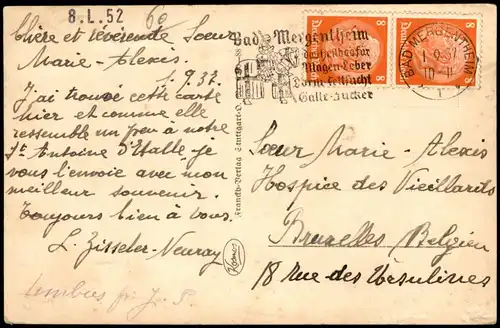 8.L.52
60
Chère et révérende Sœur
Marie-Alexis.
1.9.37.
J'ai trouvé cette carte
hier et comme elle
ressemble un peu à notre
St Antoine d'Italie je
vous l'envoie avec mon
meilleur souvenir.
Toujours bien à vous.
L. Zisseler-Neuray
Bad Mergentheim
das Heilbad für
Magen-Leber
Darm-Fettsucht
Galle-Zucker
Deutsches Reich
8 8
8 8
BAD MERGENTHEIM
1.9.37
10-11
Franckh-Verlag Stuttgart-O
Kosmos
Sœur Marie-Alexis
Hospice des Vieillards
Bruxelles Belgien
18 rue des Ursulines